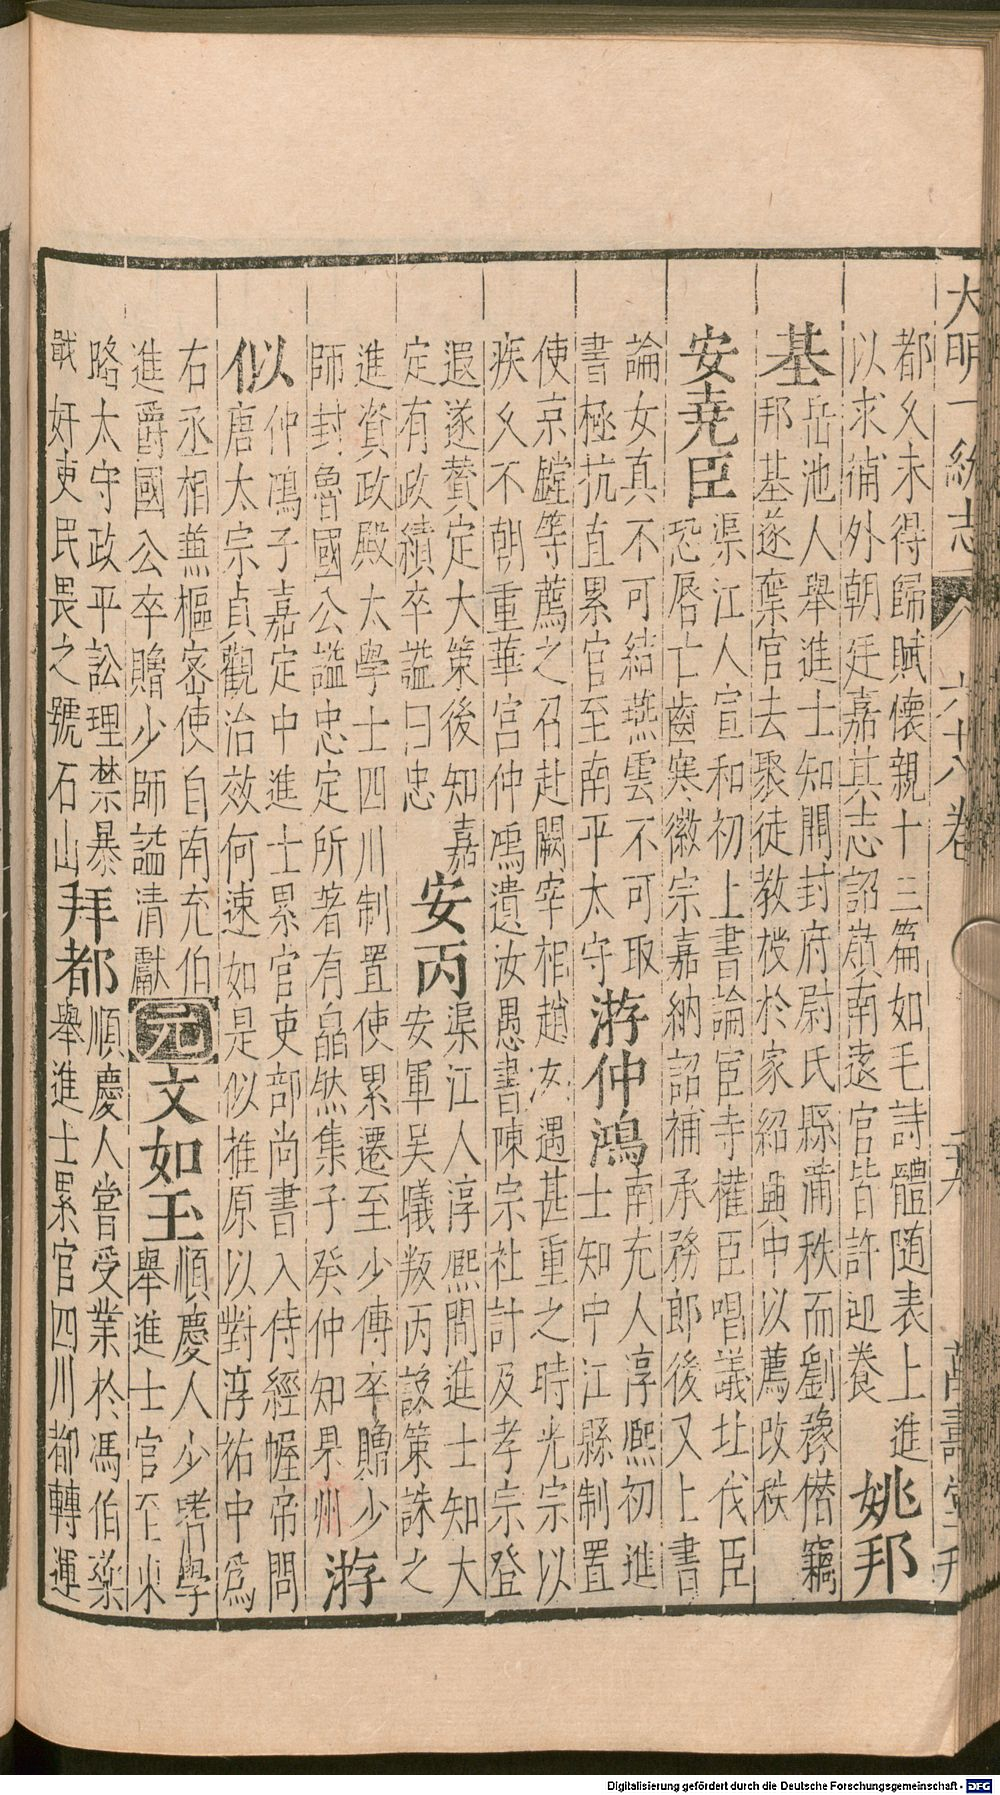 大明一統志 六十八卷 萬壽堂刋
都父未得歸賦懷親十三篇如毛詩體随表上進
以求補外朝廷嘉其志詔嶺南遠官皆許迎養
姚邦
基
岳池人舉進士知開封府尉氏縣蒲秩而劉豫僭竊
邦基遂棄官去聚徒教授於家紹興中以薦改秩
安堯臣
渠江人宣和初上書論宦寺權臣唱議北伐臣
恐唇亡齒寒徽宗嘉納詔補承務郎後又上書
論女真不可結燕雲不可取
書極抗直累官至南平太守
游仲鴻
南充人淳熙初進
士知中江縣制置
使京鏜等薦之召赴闕宰相趙汝遇甚重之時光宗以
疾久不朝重華宮仲鴻遺汝愚書陳宗社計及孝宗登
遐遂贊定大策後知嘉
定有政績卒謚曰忠
安丙
渠江人淳熙間進士知大
安軍吳曦叛丙設策誅之
進資政殿太學士四川制置使累遷至少傅卒贈少
師封魯國公謚忠定所著有皛然集子癸仲知果州
游
似
仲鴻子嘉定中進士累官吏部尚書入侍經幄帝問
唐太宗貞觀治效何速如是似推原以對淳祐中爲
右丞相兼樞密使自南充伯
進爵國公卒贈少師謚清獻
元
文如玉
順慶人少嗜學
舉進士官至東
路太守政平訟理禁暴
戢奸吏民畏之號石山
拜都
順慶人嘗受業於馮伯
舉進士累官四川都轉運
Digitalisierung gefördert durch die Deutsche Forschungsgemeinschaft - DFG